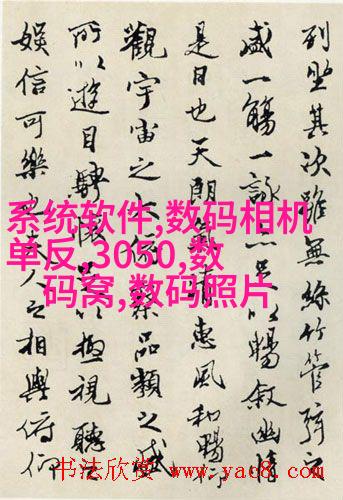 列坐其次雖無絲竹管弦之
盛一觴一詠亦足以暢敘幽情
是日也天朗氣清惠風和暢仰
觀宇宙之大俯察品類之盛
所以遊目騁懷足以極視聽之
娛信可樂也夫人之相與俯仰
系统软件,数码相机
单反,3050,数
码窝,数码照片
书法欣赏 www.yac8.com